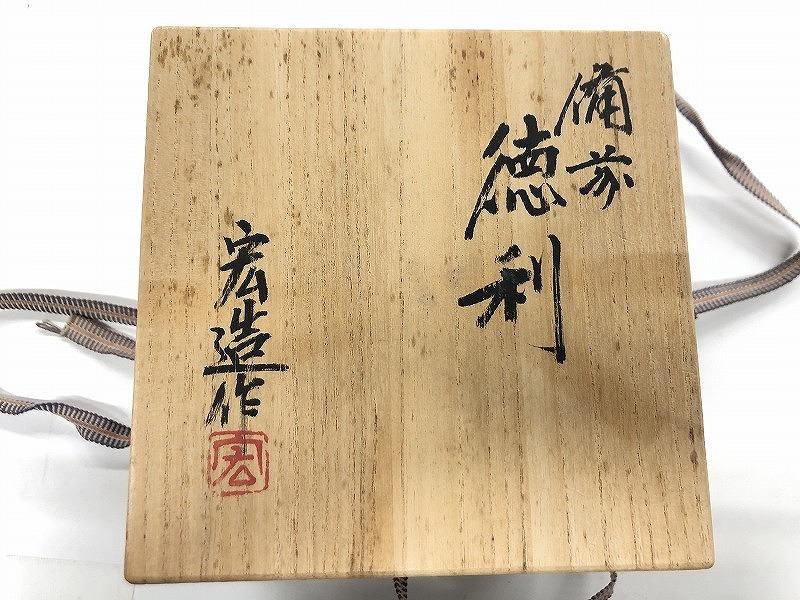 備前
徳利
宏造作
宏